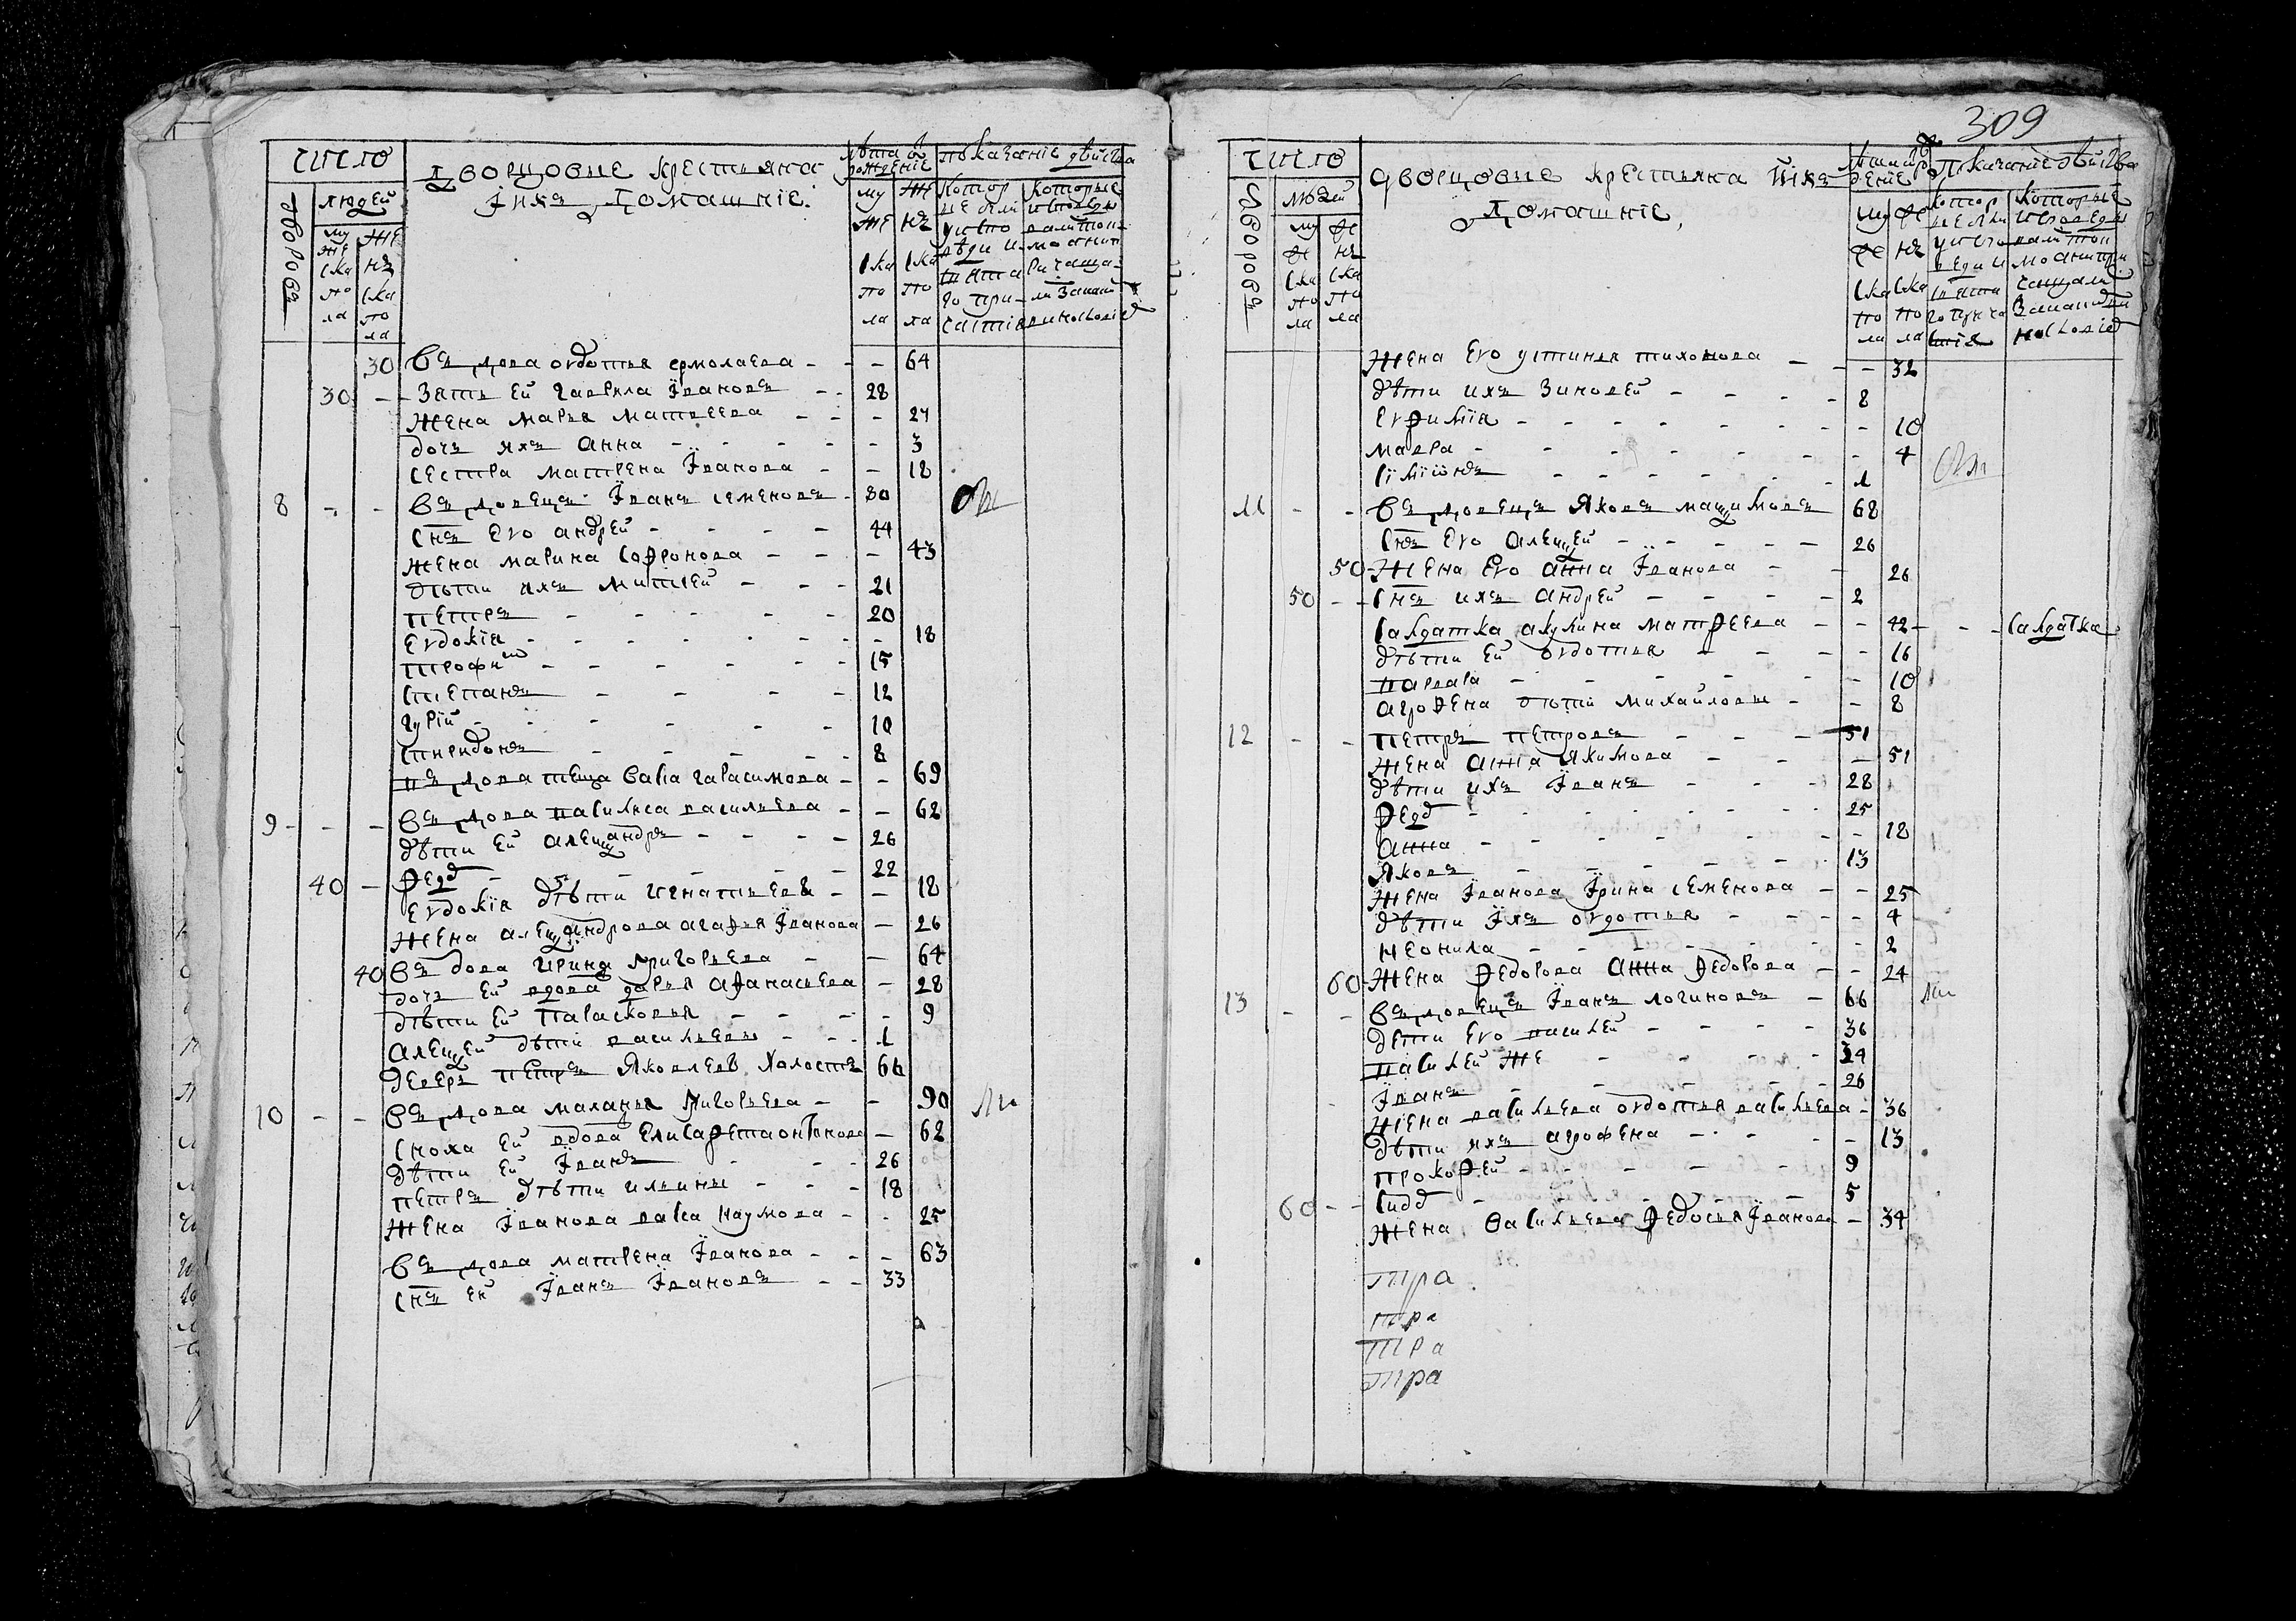 число
дворовъ
людей
мужеска пола
женска пола
Дворцовые крестьяня
и ихъ домашніе
лѣта от рожденіе
мужеска пола
женска пола
показаніе дѣйства
30 вдова овдотья ермолаева - - - 64
30 - - Зять ей гаврила Ївановъ - - 28
жена марья матвеева - - - 27
дочь ихъ анна - - - - 3
сестра матрена Їванова - - 18
8 - - вдовецъ Їванъ семеновъ - 80
снъ его андрей - - - - 44
жена марина софронова - - - 43
дѣти ихъ митрей - - - 21
петръ - - - - - 20
евдокія - - - - - - 18
трофим - - - - - 15
степанъ - - - - 12
гурій - - - - - 10
спиридонъ - - - - 8
вдова теща васса гарасимова - - 69
9 - - - вдова василиса васильева - - 62
дѣти ей алеѯандръ - - - - 26
40 - Ѳедо - - - - - 22
евдокія дѣти игнатьевы - - 18
жена алеѯандрова агаѳья Їванова - 26
40 вдова ирина григорьева - - 64
дочь ей вдова дарья аѳанасьева - 28
дѣти ей парасковья - - - - 9
алеѯей дѣти васильевы - - 1
деверь петръ яковлевъ холостъ
10 - - вдова маланья григорьева - - 90
сноха ей вдова елисаѳета онтонова - 62
дѣти ей Їванъ - - - 26
петръ дѣти ильины - - - 18
жена Їванова васса наумова - - 25
вдова матрена Їванова - - - 63
снъ ей Їванъ Ївановъ - - 33
309
число
дворовъ
людей
мужеска пола
женска пола
Дворцовые крестьяня и ихъ
домашніе
показаніе дѣйства
жена его устинья тихонова - - - 32
дѣти ихъ зиновей - - - - 8
евфимія - - - - - - - 10
мавра - - - - - - 4
сїмїонъ - - - - - - 1
11 - - вдовецъ яковъ маѯимовъ 68
снъ его алеѯей - - - - - 26
50 - жена его анна Їванова - - 26
50 - - снъ ихъ андрей - - - - 2
салдатка акулина матѳеева - - 42 - - - салдатка
дѣти ей овдотья - - - - 16
варвара - - - - - - 10
агроѳена дѣти михайловы - - 8
12 - - петръ петровъ - - - 51
жена анна якимова - - - 51
дѣти ихъ Їванъ - - - - 28
Ѳедо - - - - - 25
анна - - - - - - 18
яковъ - - - - - 13
жена Їванова Їрина семенова - - 25
дѣти Їхъ овдотья - - - - 4
неонила - - - - - - 2
60 - жена Ѳедорова анна Ѳедорова - - 24
13 - - вдовецъ Їванъ логиновъ - 66
дети его василей - - - - 36
василей же - - - - 34
Їванъ - - - - - 26
жена васильева овдотья васильева - 36
дѣти ихъ агрофена - - - - 13
прокоѳей - - - - - 9
60 - - сидо - - - - - 5
жена васильева Ѳедосья Їванова - 34
тра
тра
тра
тра